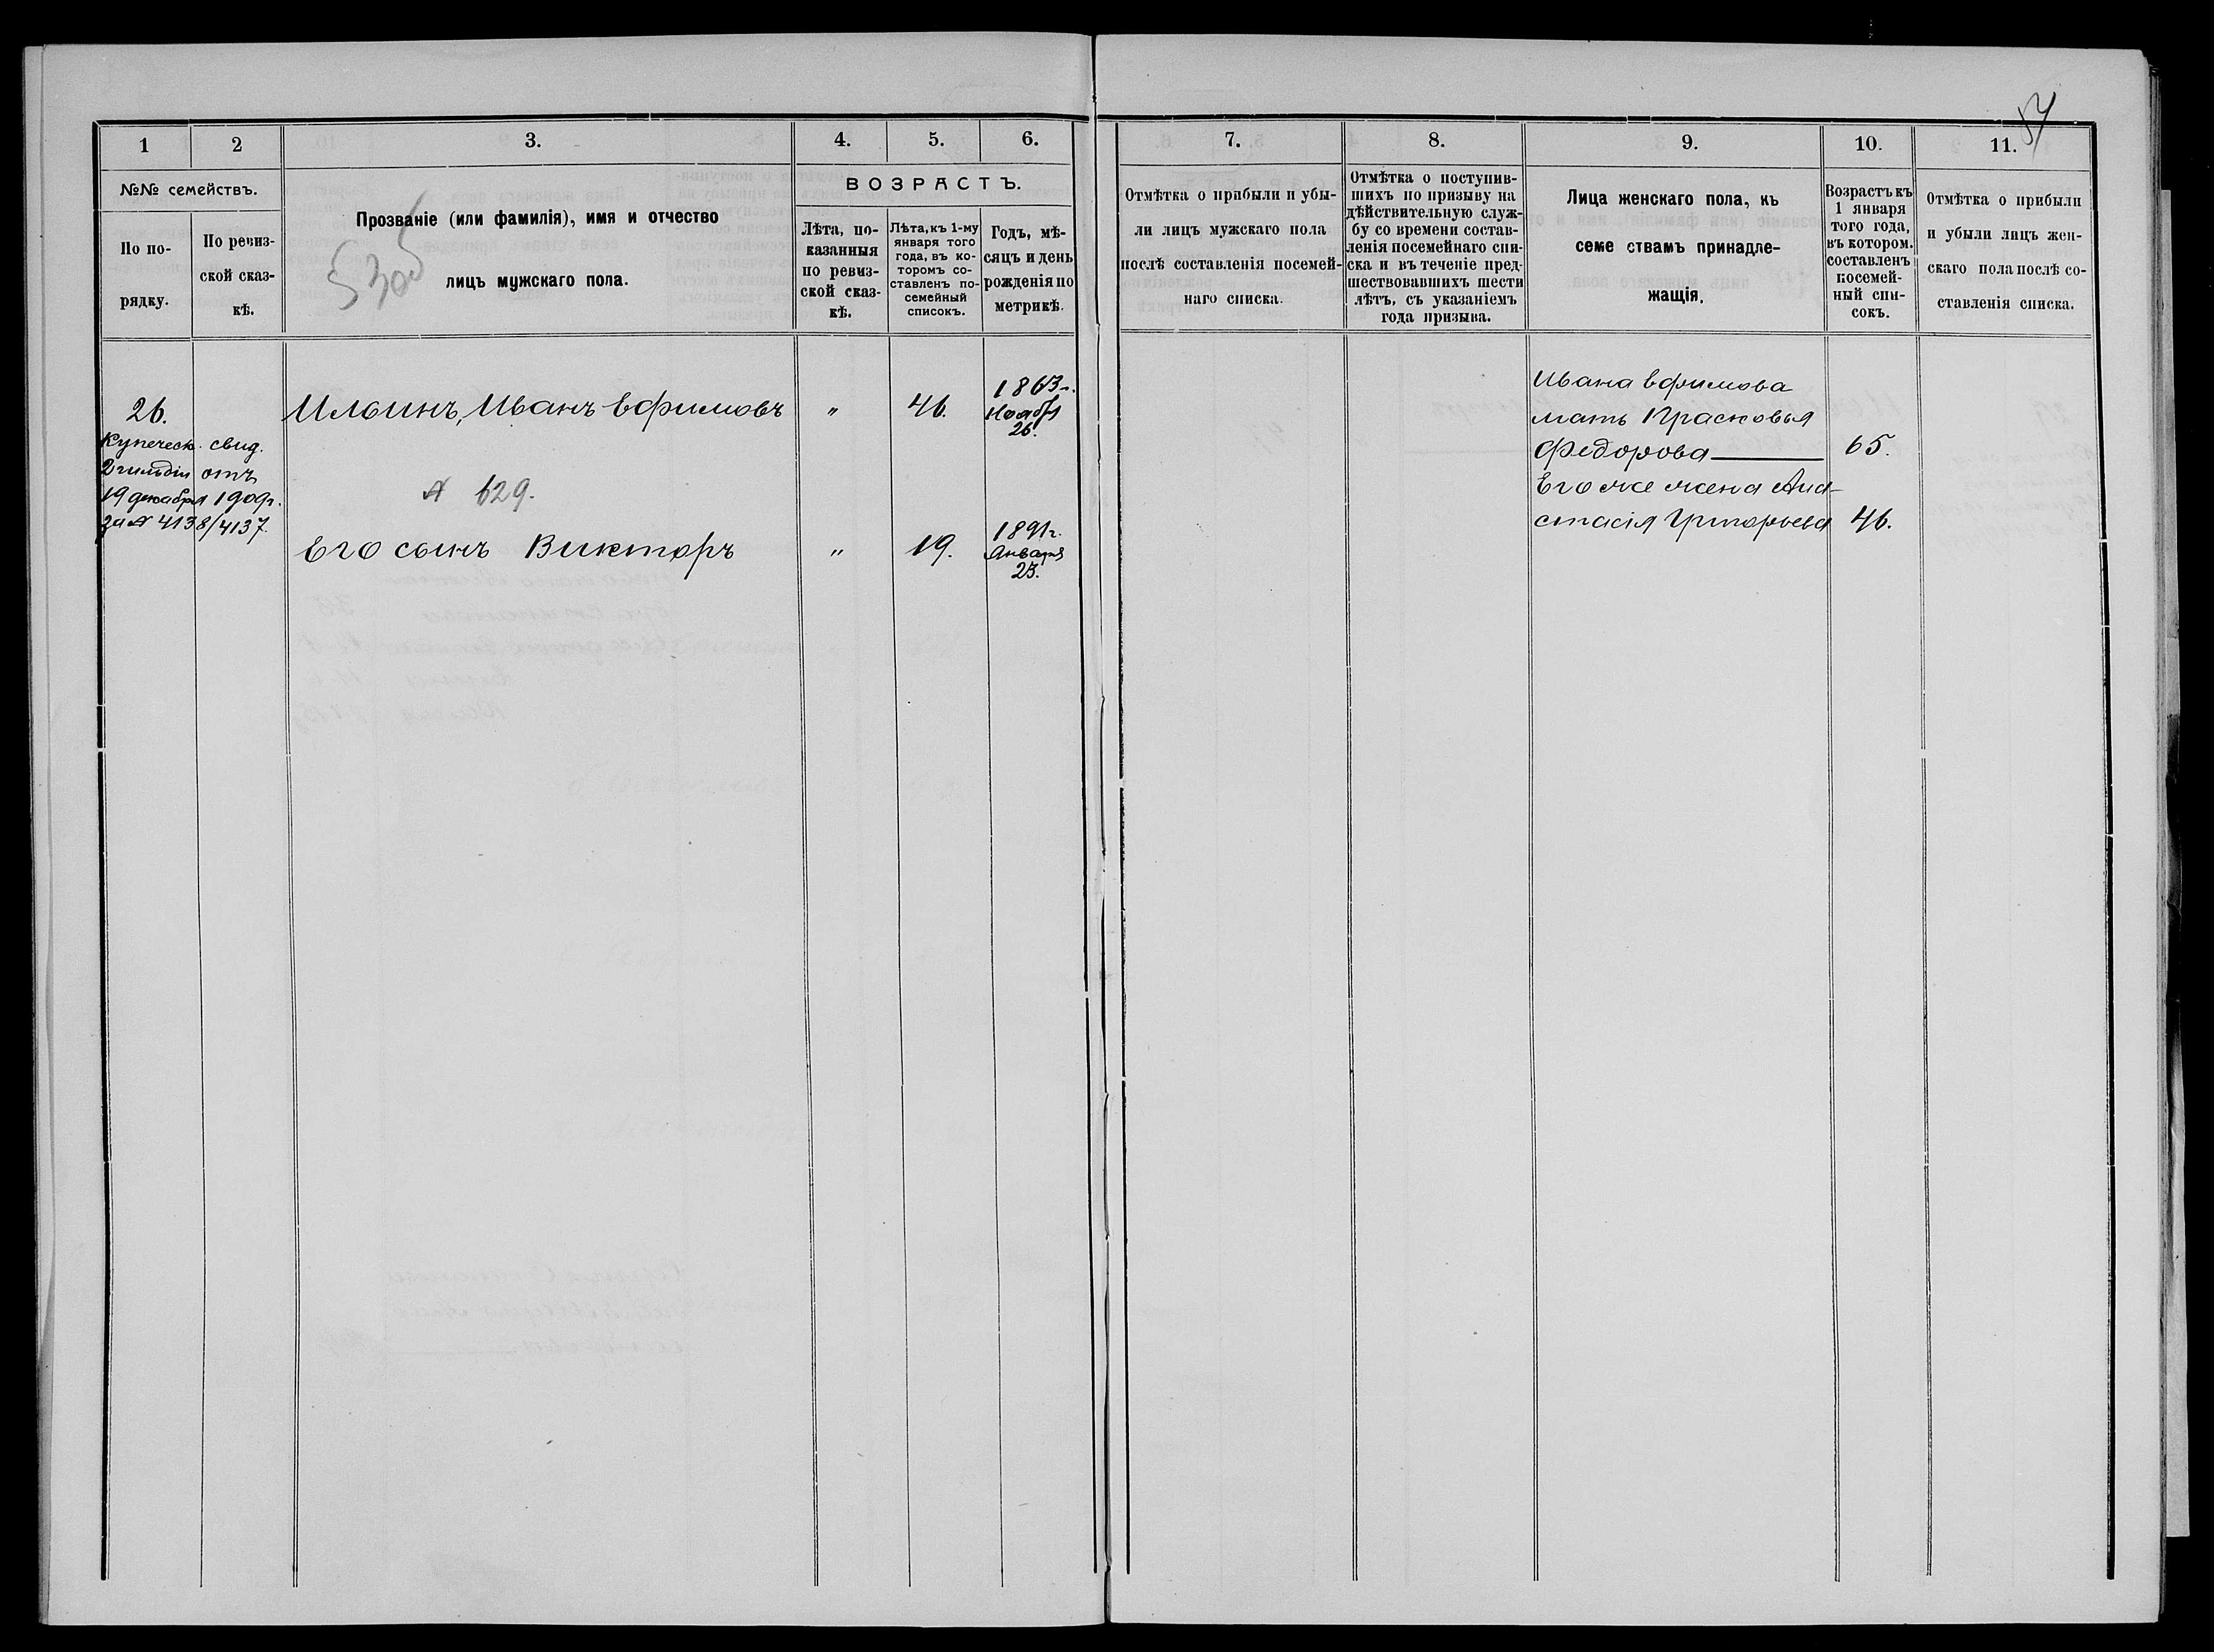 57
1
2
3.
4.
5.
6.
№№ семействъ.
По по-
рядку.
По ревиз-
ской сказ-
кѣ.
Прозваніе (или фамилія), имя и отчество
лицъ мужскаго пола.
ВОЗРАСТЪ.
Лѣта, по-
казанныя
по ревиз-
ской сказ-
кѣ.
Лѣта, къ 1-му
января того
года, въ ко-
торомъ со-
ставленъ по-
семейный
списокъ.
Годъ, мѣ-
сяцъ и день
рожденія по
метрикѣ.
26.
Купеческ. свид.
2 гильдіи отъ
19 декабря 1909г.
за № 4138/4137.
Ильинъ, Иванъ Ефимовъ
"
46.
1863г.
Ноября
26.
№ 629.
Его сынъ Викторъ
"
19.
1891г.
Января
23.
7.
8.
9.
10.
11.
Отмѣтка о прибыли и убы-
ли лицъ мужскаго пола
послѣ составленія посемей-
наго списка.
Отмѣтка о поступив-
шихъ по призыву на
дѣйствительную служ-
бу со времени состав-
ленія посемейнаго спи-
ска и въ теченіе пред-
шествовавшихъ шести
лѣтъ, съ указаніемъ
года призыва.
Лица женскаго пола, къ
семе ствамъ принадле-
жащія.
Возрастъ къ
1 января
того года,
въ котором.
составленъ
посемей-
ный спи-
сокъ.
Отмѣтка о прибыли
и убыли лицъ жен-
скаго пола послѣ со-
ставленія списка.
Ивана Ефимова
мать Прасковья
Федорова 65.
Его же жена Ана-
стасія Григорьева 46.